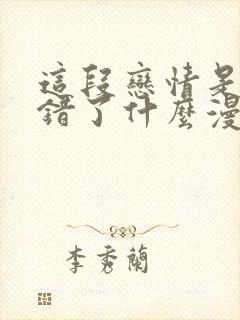 這段戀情是
錯了什麼漫
李秀蘭